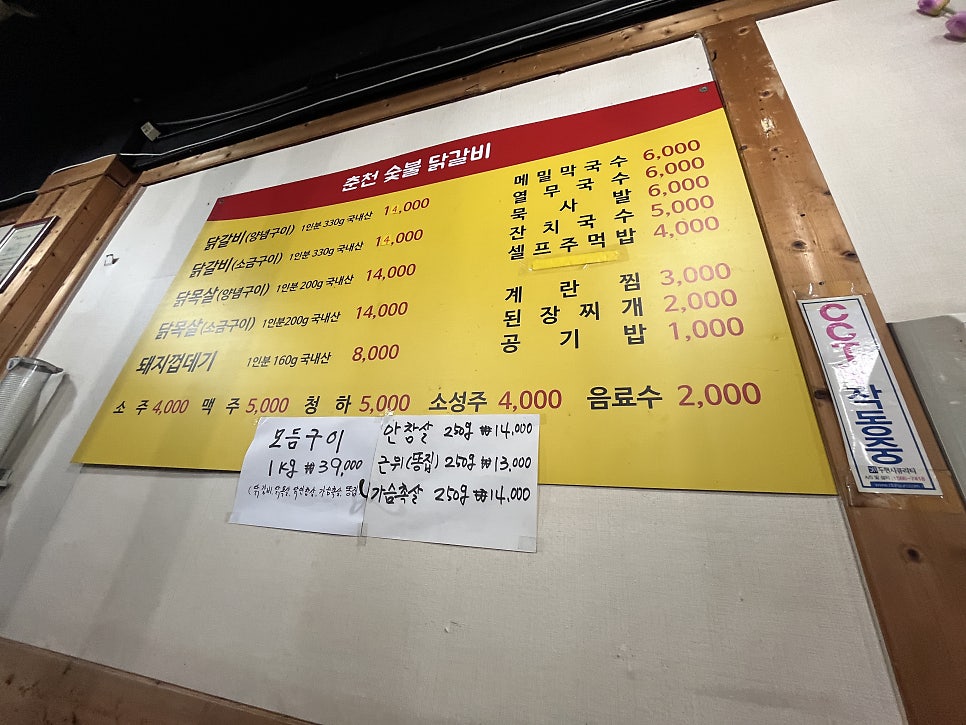 춘천 숯불 닭갈비
닭갈비(양념구이) 1인분 330g 국내산 14,000
닭갈비(소금구이) 1인분 330g 국내산 14,000
닭목살(양념구이) 1인분 200g 국내산 14,000
닭목살(소금구이) 1인분 200g 국내산 14,000
돼지껍데기 1인분 160g 국내산 8,000
메밀막국수 6,000
열무국수 6,000
묵사발 6,000
잔치국수 5,000
셀프주먹밥 4,000
계란찜 3,000
된장찌개 2,000
공기밥 1,000
소주 4,000 맥주 5,000 청하 5,000 소성주 4,000 음료수 2,000
모듬구이
1kg ₩39,000
안창살 250g ₩14,000
근위(똥집) 250g ₩13,000
가슴쵹살 250g ₩14,000
작동중